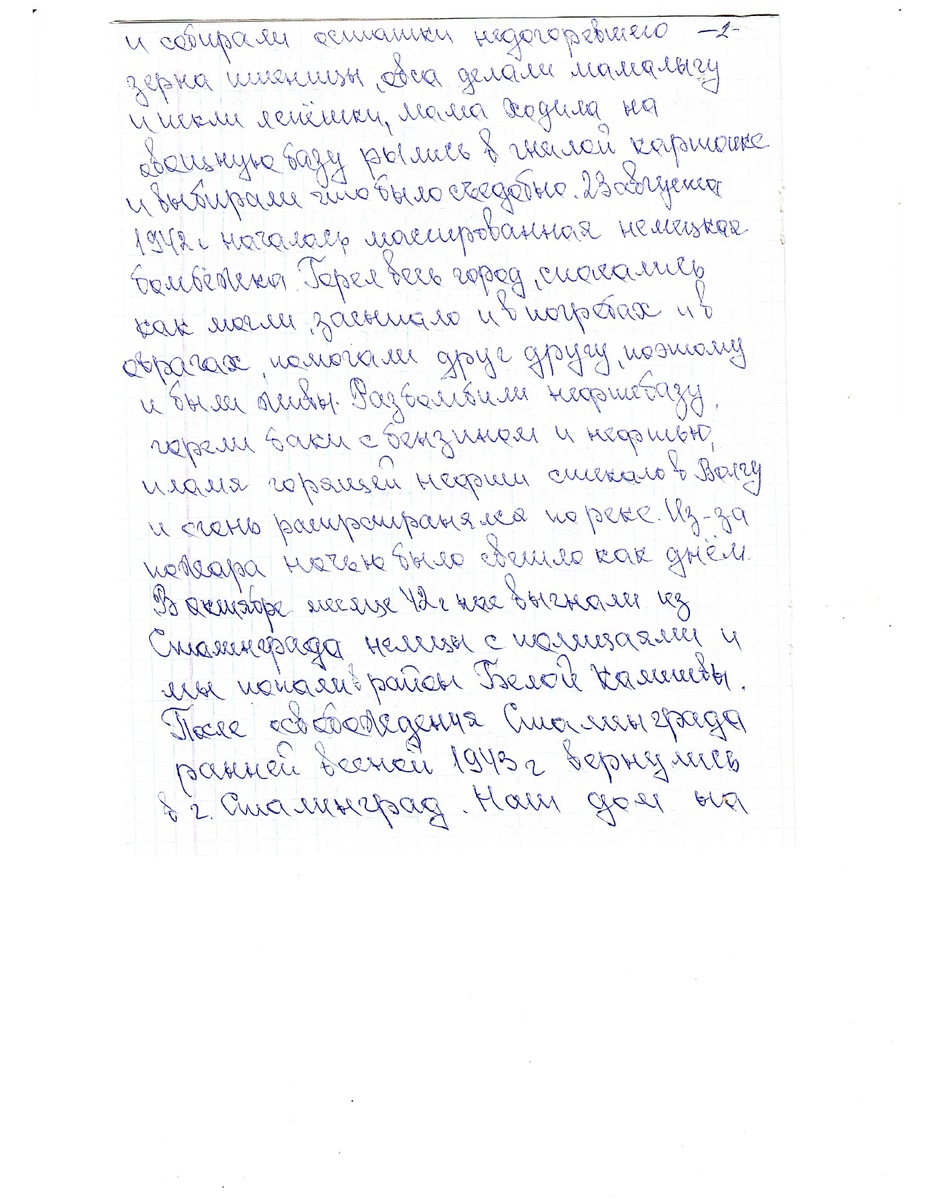 и собирали остатки недогоревшего -2-
зерна пшеницы, овса делали мамалыгу
и пекли лепёшки, мама ходила на
овощную базу рылись в гнилой картошке
и выбирали что было съедобно. 23 августа
1942 г началась массированная немецкая
бомбёжка. Горел весь город, спасались
как могли, засыпало и в погребах и в
оврагах, помогали друг другу, поэтому
и были живы. Разбомбили нефтебазу,
горели баки с бензином и нефтью,
пламя горящей нефти стекало в Волгу
и огонь распространялся по реке. Из-за
пожара ночью было светло как днём.
В октябре месяце 42 г нас выгнали из
Сталинграда немцы с полицаями и
мы попали в район Белой Калитвы.
После освобождения Сталинграда
ранней весной 1943 г вернулись
в г. Сталинград. Наш дом на